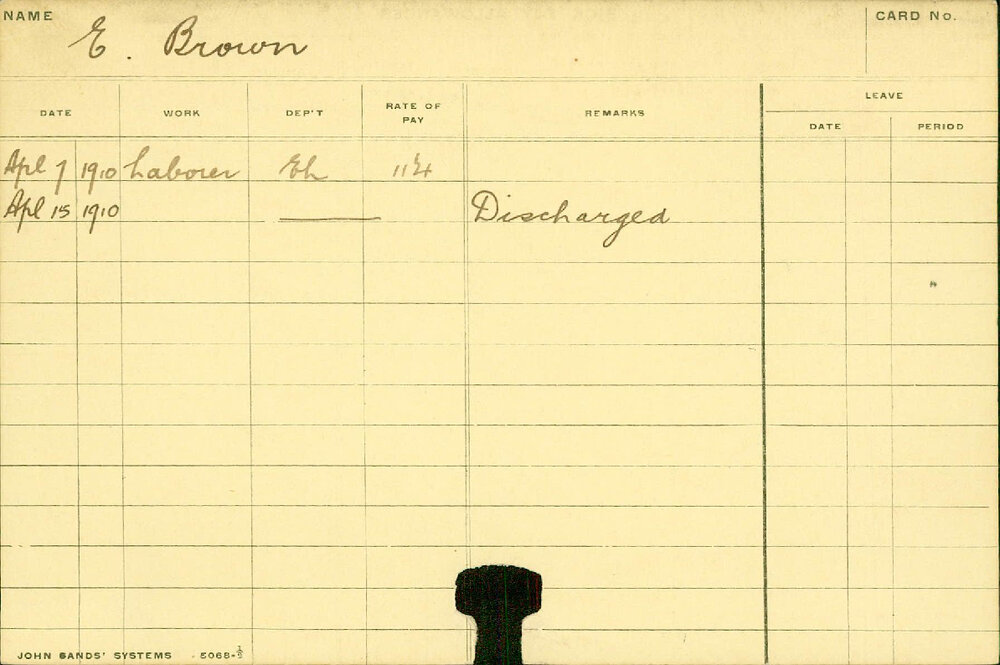 NAME E. Brown CARD No.
DATE WORK DEP'T RATE OF PAY REMARKS LEAVE
DATE PERIOD
Apl 7 1910 Laborer Eh
Apl 15 1910 Discharged
JOHN SANDS' SYSTEMS